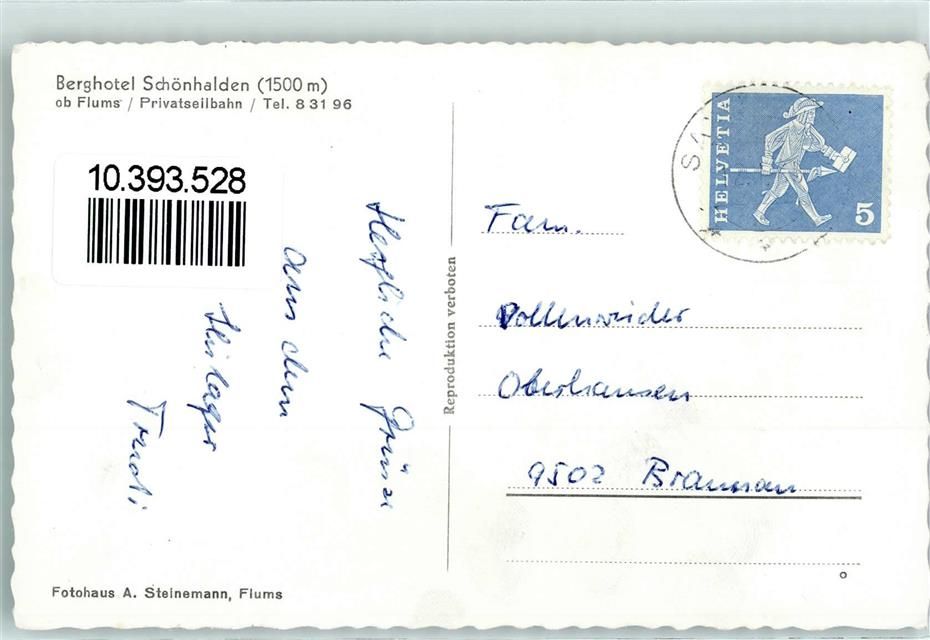 Berghotel Schönhalden (1500 m)
ob Flums / Privatseilbahn / Tel. 8 31 96
10.393.528
Herzliche Grüsse
aus dem
Skilager
Trudi
Reproduktion verboten
HELVETIA
5
Fam.
Oberhausen
9502 Braunau
Fotohaus A. Steinemann, Flums